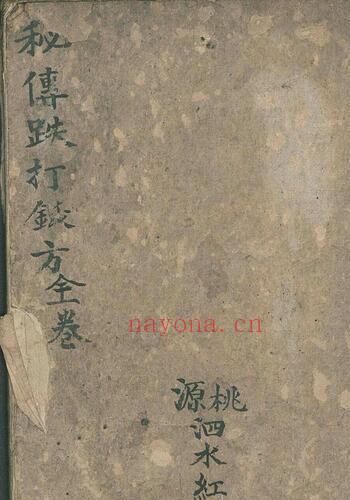 秘傳跌打錄方全卷
桃源
泗水紅
nayona.cn